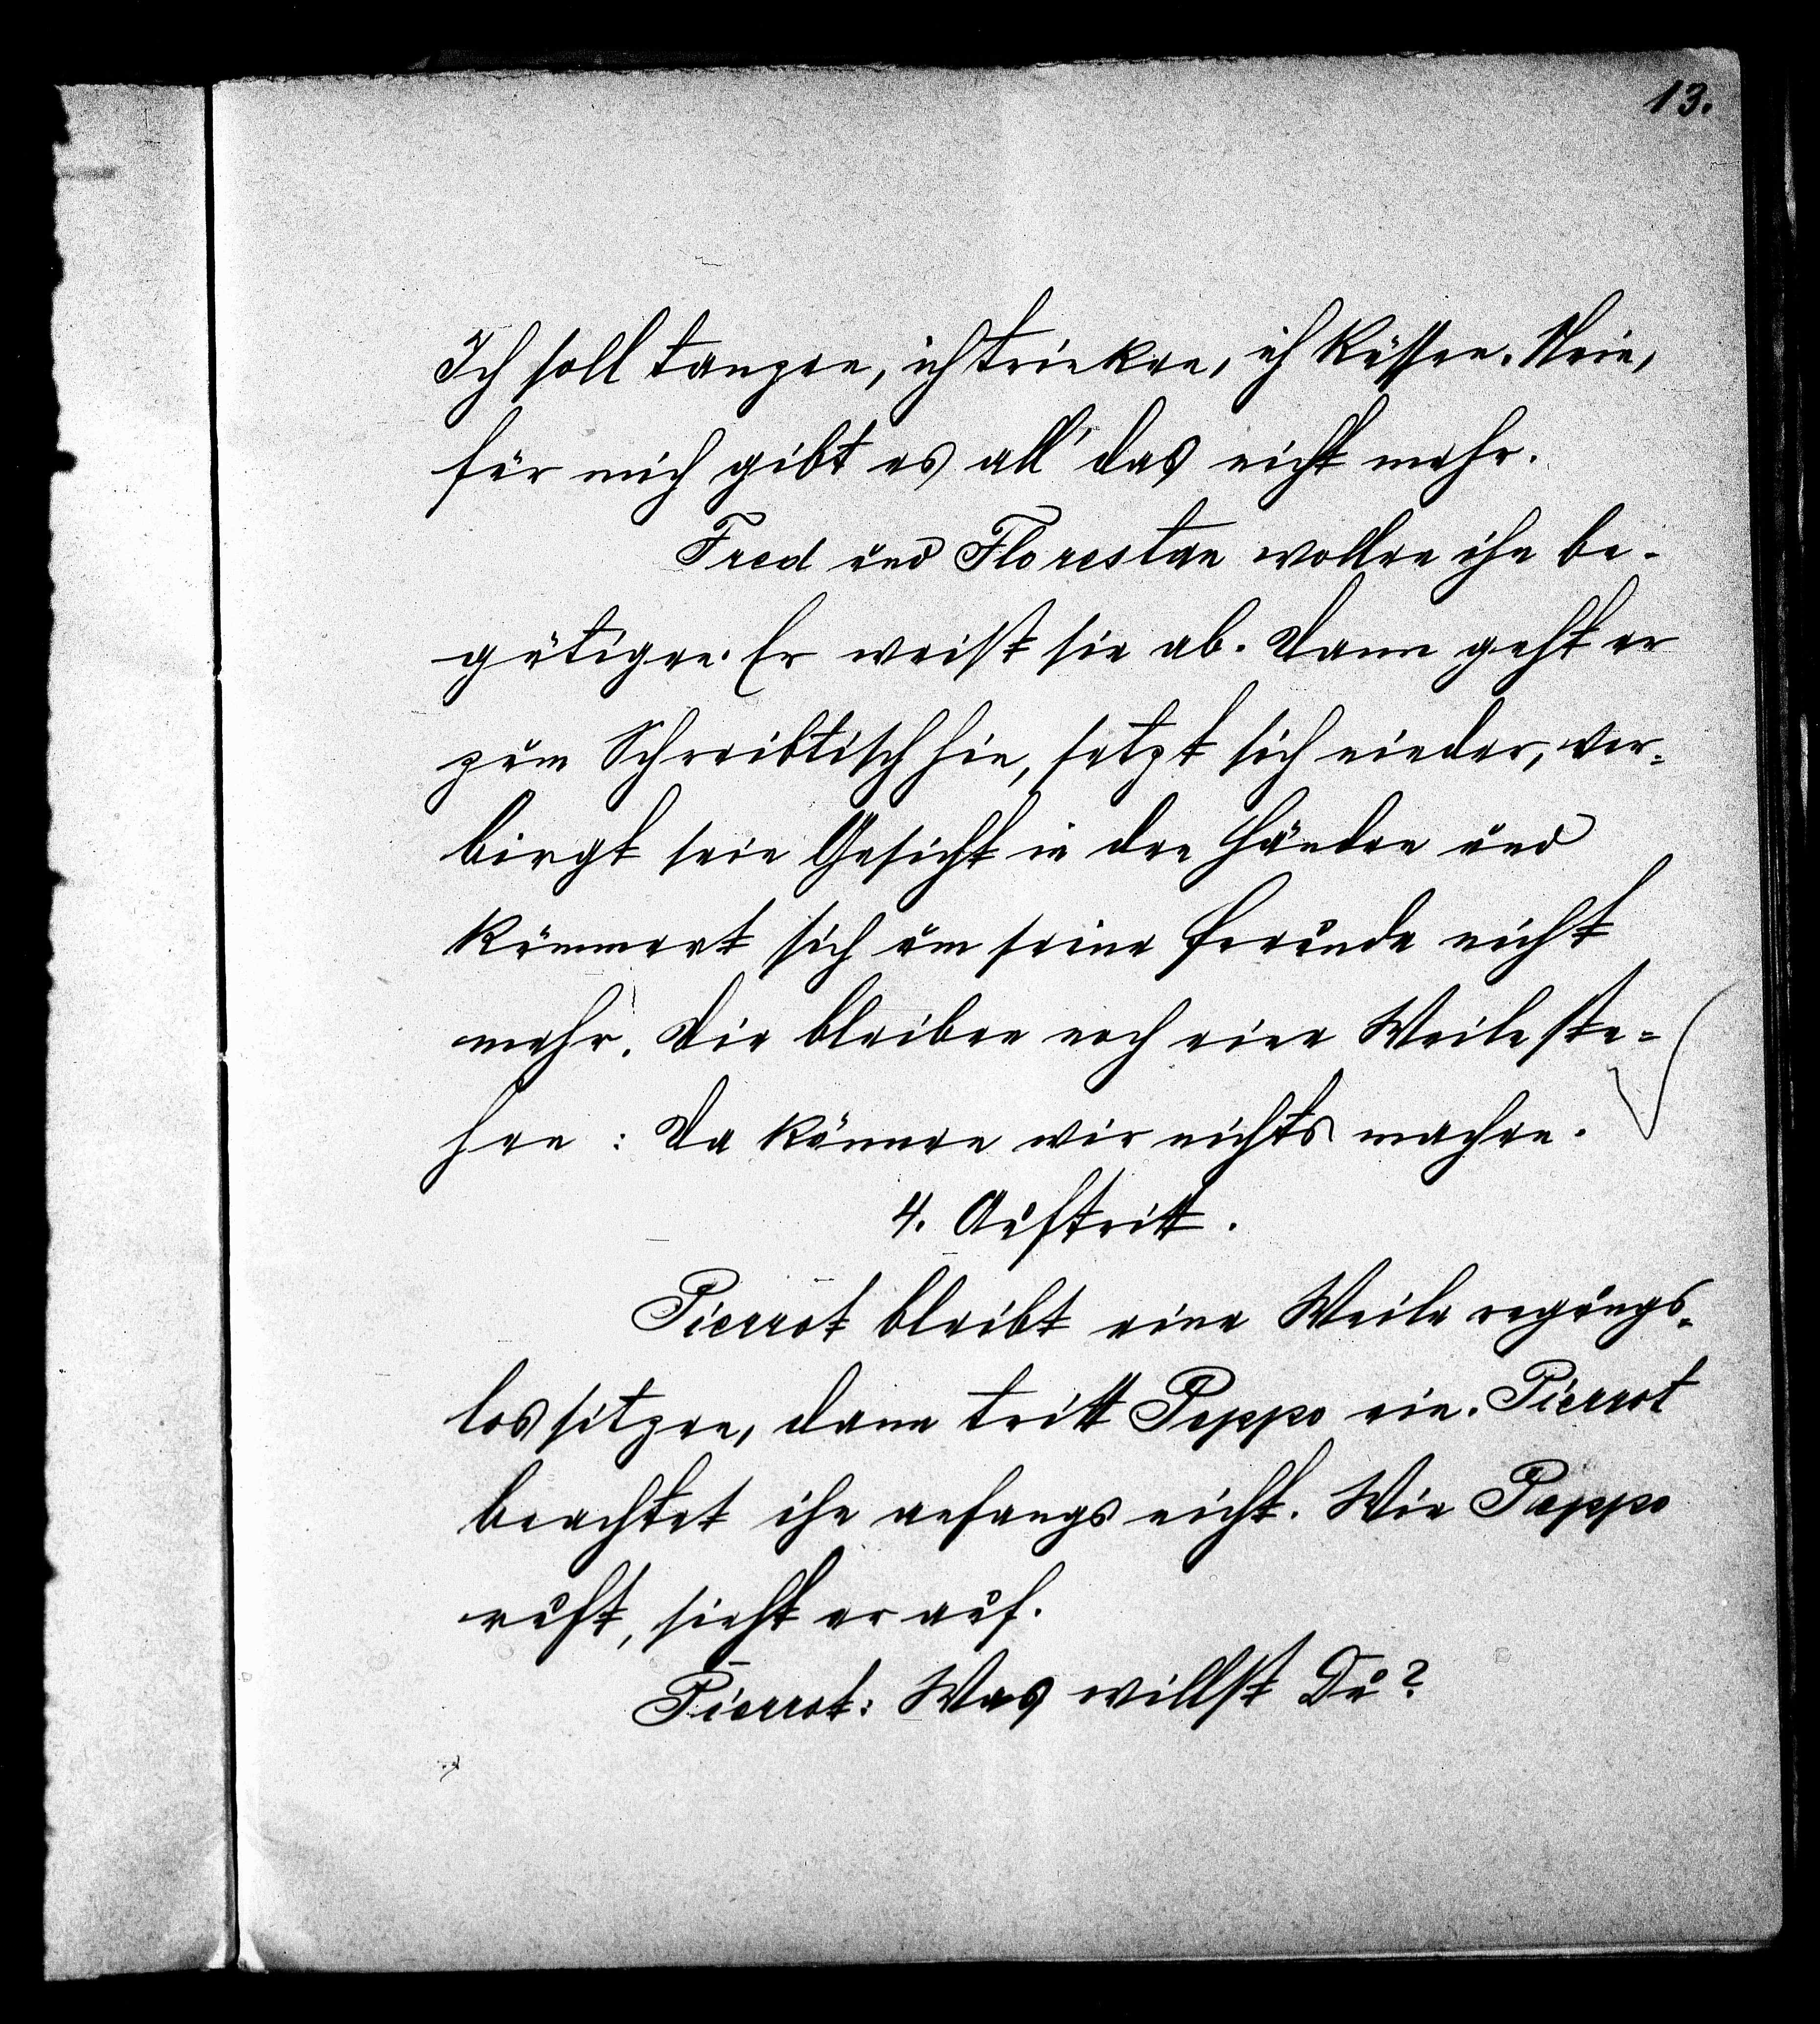 13.
Ich soll tanzen, ich trinken, ich küssen. Nein,
für mich gibt es all' das nicht mehr.
Fred und Florestan wollen ihn be-
gütigen. Er weist sie ab. Dann geht er
zum Schreibtisch hin, setzt sich nieder, ver-
birgt sein Gesicht in den Händen und
kümmert sich um seine Freunde nicht
mehr. Die bleiben noch eine Weile ste-
hen : Da können wir nichts machen.
4. Auftritt.
Pierrot bleibt eine Weile regungs-
los sitzen, dann tritt Peppo ein. Pierrot
beachtet ihn anfangs nicht. Wie Peppo
ruft, sieht er auf.
Pierrot: Was willst Du?